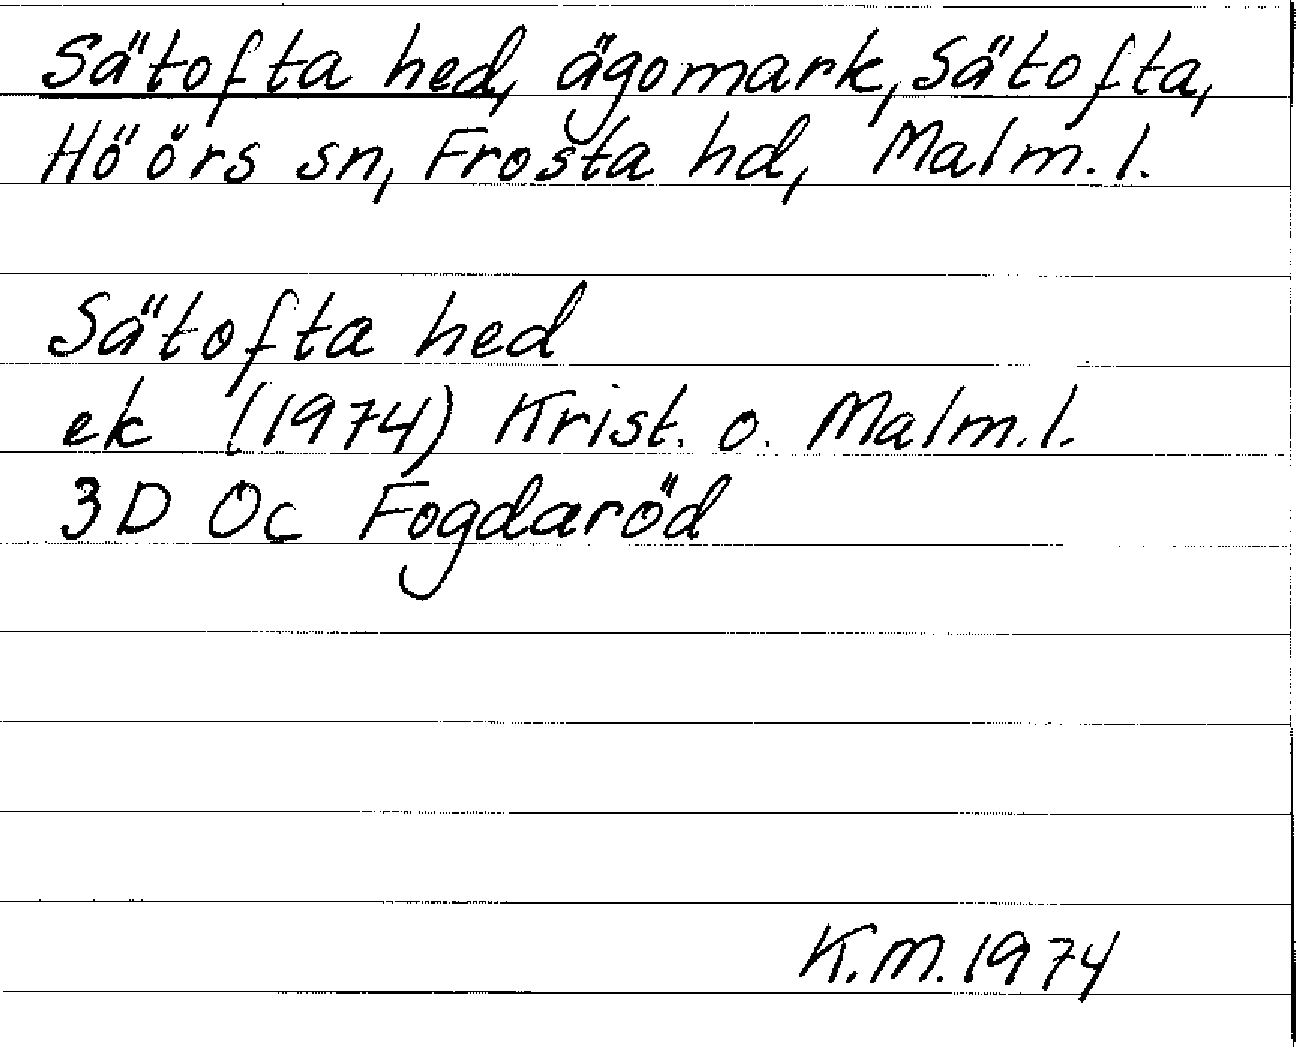 Sätofta hed, ägomark, Sätofta,
Höörs sn, Frosta hd, Malm. l.
Sätofta hed
ek (1974) Krist. o. Malm. l.
3D Oc Fogdaröd
K.M. 1974